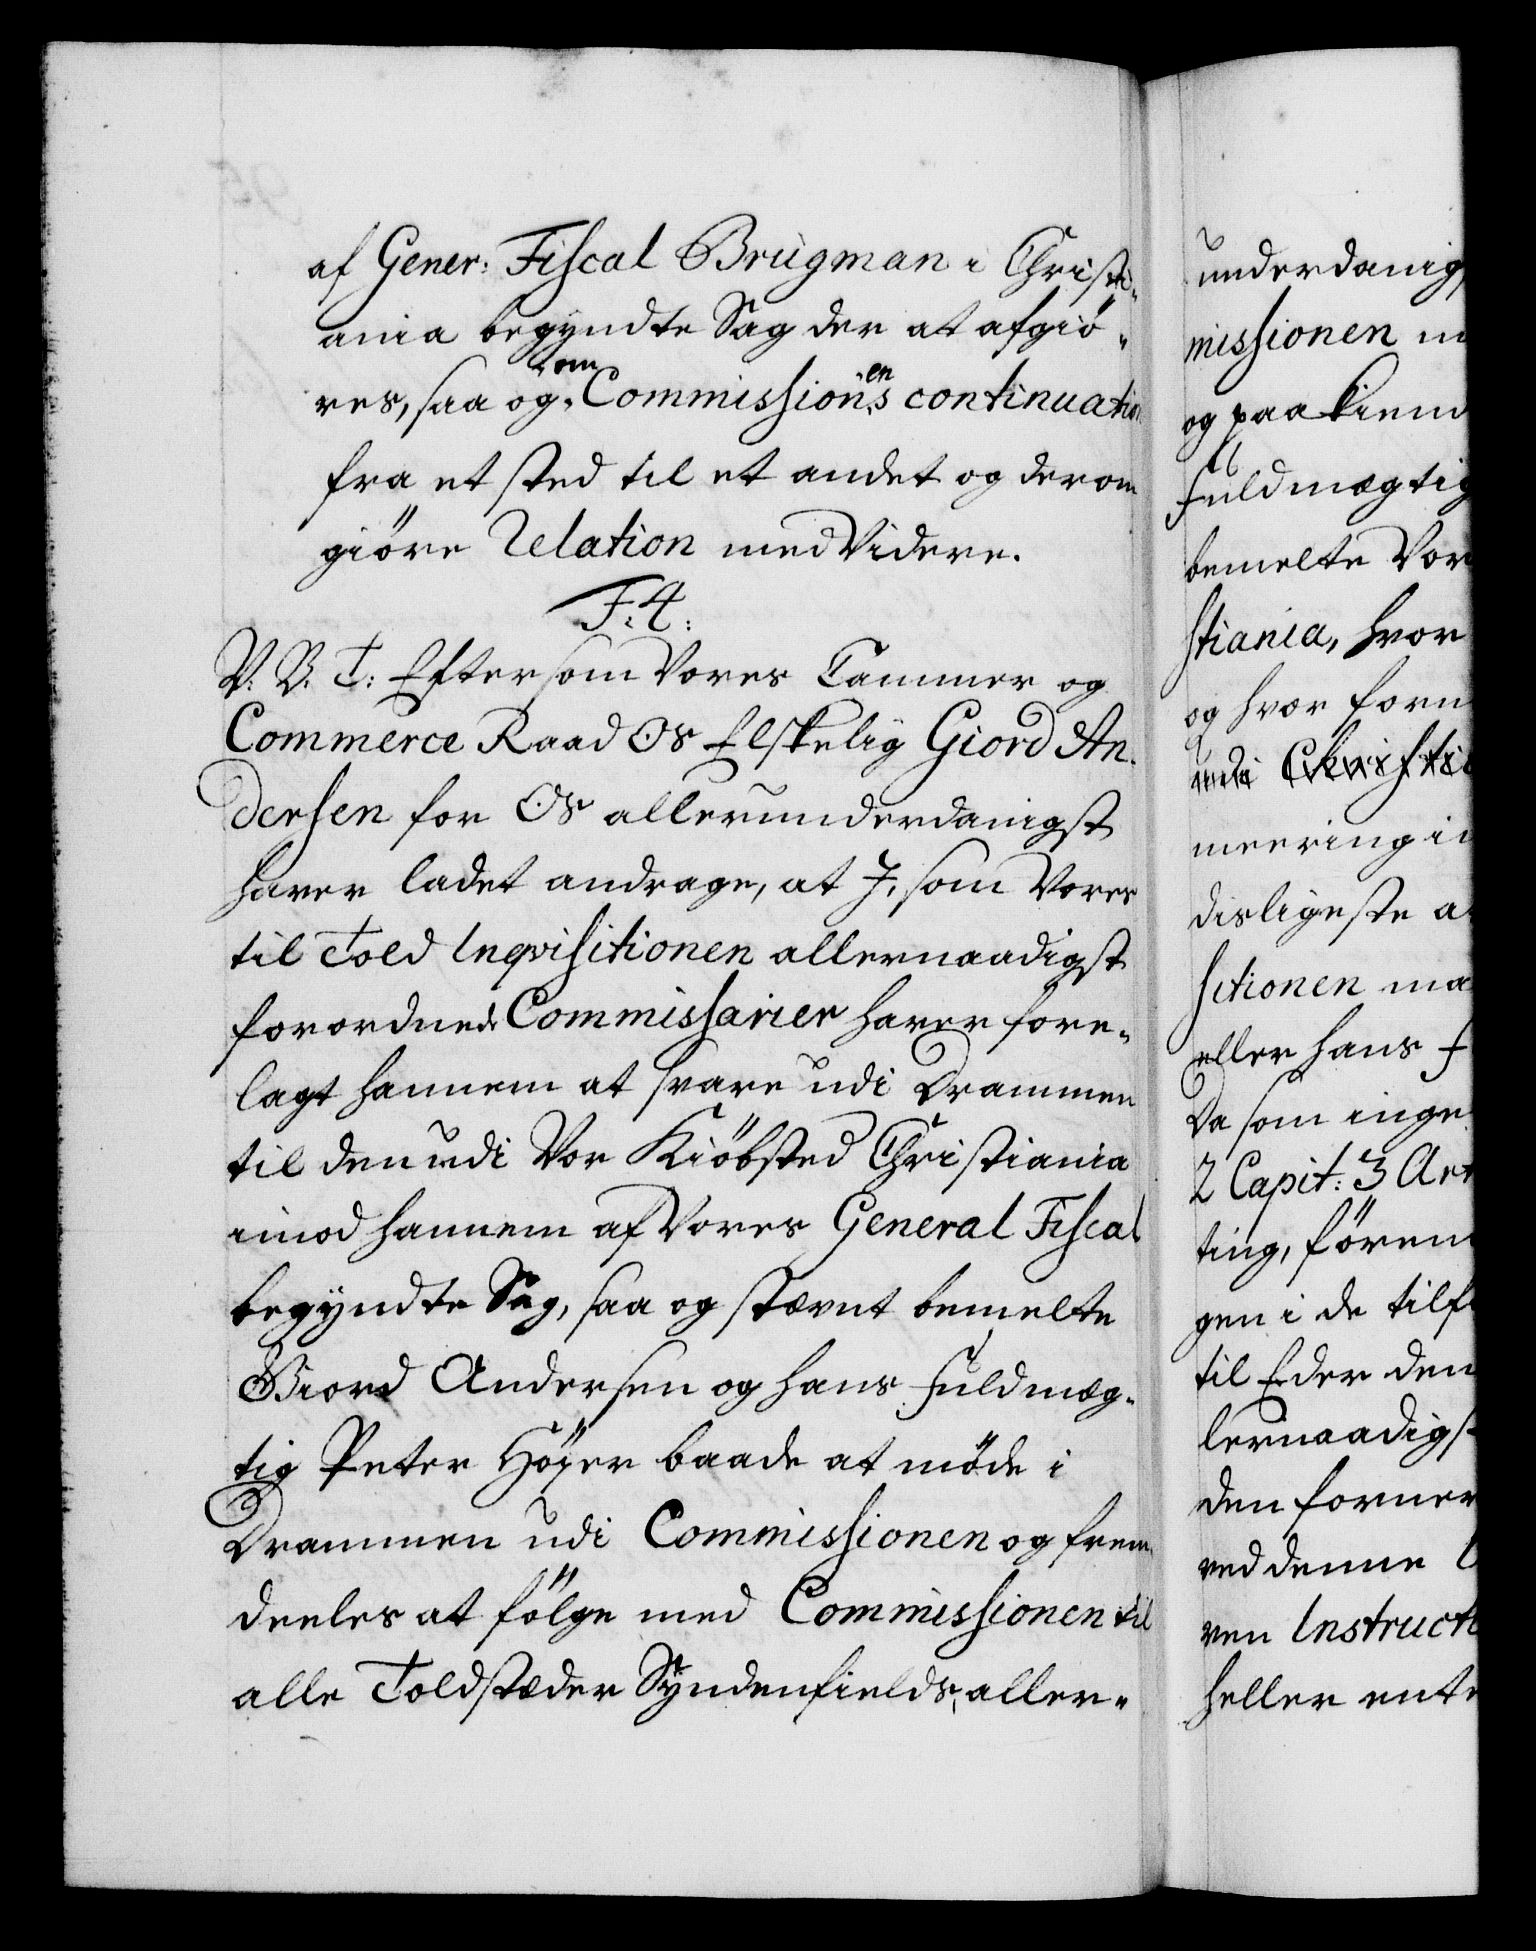 af Gener: Fiscal Brügman i Christi-
ania begyndte Sag der at afgiö-
res, saa og om Commissionens continuation
fra et sted til et andet og derom
giöre Relation med Videre.
F: 4.
V. B. T: Eftersom Vores Cammer og
Commerce Raad Os Elskelig Giord An-
dersen for Os allerunderdanigst
haver ladet andrage, at J, som Vores
til Told Inqvisitionen allernaadigst
forordnede Commissarier haver fore-
lagt hannem at svare udi Drammen
til den udi Vor Kiöbsted Christiania
imod hannem af Vores General Fiscal
begyndte Sag, saa og stævnt bemelte
Giord Andersen og hans Fuldmæg-
tig Peter Höyer baade at möde i
Drammen udi Commissionen og frem-
deeles at fölge med Commissionen til
alle Toldstæder Syndenfields, aller-
underdanigs
missionen
og paa kiend
Fuldmægtig
bemelte Vor
stiania, hvor
og hvor forn
udi Christi
meering i
disligeste
sitionen ma
eller hans F
Da som inge
2 Capit: 3 Art
ting, fören
gen i de tilf
til Eder den
lernaadigs
den forner
ved denne
ven Instructi
heller ent